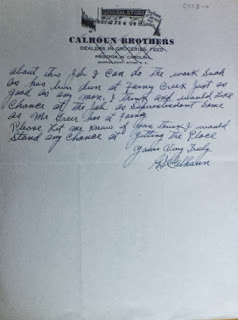 GENERAL STORE
CALHOUN BROTHERS
DEALERS IN GROCERIES, FEED
PROCTOR, N. CAROLINA
about this Job I can do the work Such
as has been done at Fanny Creek Just as
good as any man, I think and would like
Chance at the Job as Superintendent Same
as Mr Greer has at Fanny
Please Let me know if you think I would
Stand any Chance at getting the Place
Yours Very Truly
Calhoun